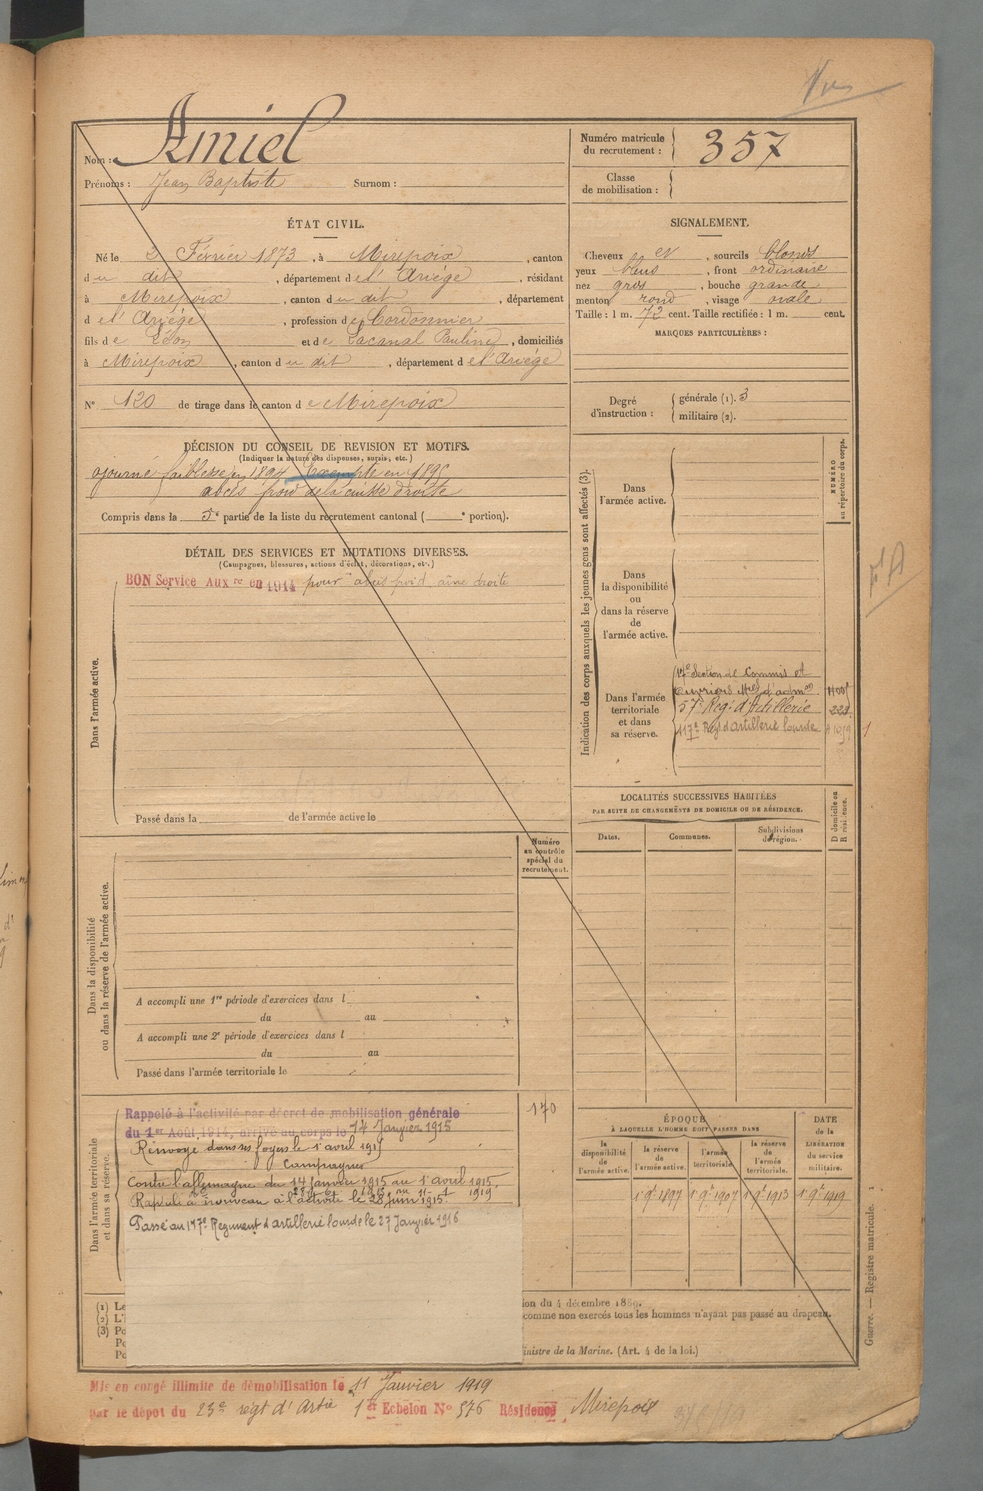 Nom : Amiel
Prénoms : Jean Baptiste Surnom :
Numéro matricule du recrutement : 357
Classe de mobilisation :
ÉTAT CIVIL.
Né le 2 Février 1873, à Mirepoix, canton
du dit, département de l'Ariège, résidant
à Mirepoix, canton du dit, département
de l'Ariège, profession de Cordonnier
fils de Léon et de Lacanal Pauline, domiciliés
à Mirepoix, canton du dit, département de l'Ariége
N° 120 de tirage dans le canton de Mirepoix
SIGNALEMENT.
Cheveux et, sourcils blonds
yeux bleus, front ordinaire
nez gros, bouche grande
menton rond, visage ovale
Taille : 1 m. 72 cent. Taille rectifiée : 1 m. cent.
MARQUES PARTICULIÈRES :
Degré d'instruction : générale (1). 3
militaire (2).
DÉCISION DU CONSEIL DE REVISION ET MOTIFS.
(Indiquer la nature des dispenses, sursis, etc.)
ajourné faiblesse en 1894 Exempté en 1895
abcès froid de la cuisse droite
Compris dans la 5e partie de la liste du recrutement cantonal ( e portion).
DÉTAIL DES SERVICES ET MUTATIONS DIVERSES.
(Campagnes, blessures, actions d'éclat, décorations, etc.)
Dans l'armée active.
BON Service Auxre en 1914 pour abcès froid aîne droite
Passé dans la de l'armée active le
Indication des corps auxquels les jeunes gens sont affectés (3).
NUMÉRO au répertoire du corps.
Dans l'armée active.
Dans la disponibilité ou dans la réserve de l'armée active.
Dans l'armée territoriale et dans sa réserve.
17e Section de Commis et
Ouvriers Mres d'admon
57e Reg. d'Artillerie
117e Régt d'artillerie lourde
LOCALITÉS SUCCESSIVES HABITÉES
PAR SUITE DE CHANGEMENTS DE DOMICILE OU DE RÉSIDENCE.
Dates.
Communes.
Subdivisions de région.
D domicile ou R résidence.
Numéro au contrôle spécial du recrutement.
Dans la disponibilité ou dans la réserve de l'armée active.
A accompli une 1re période d'exercices dans l
du au
A accompli une 2e période d'exercices dans l
du au
Passé dans l'armée territoriale le
Dans l'armée territoriale et dans sa réserve.
170
Rappelé à l'activité par décret de mobilisation générale
du 1er Août 1914, arrivé au corps le 14 Janvier 1915
Renvoyé dans ses foyers le 1 avril 1915
Campagnes
Contre l'allemagne du 14 janvier 1915 au 1 avril 1915.
Rappelé à nouveau à l'activité le 28 juin 1915.
Passé au 117e Régiment d'artillerie lourde le 27 Janvier 1916
ÉPOQUE
À LAQUELLE L'HOMME DOIT PASSER DANS
la disponibilité de l'armée active.
la réserve de l'armée active.
l'armée territoriale.
la réserve de l'armée territoriale.
DATE de la LIBÉRATION du service militaire.
1er 9bre 1897
1er 9bre 1907
1er 9bre 1913
1er 9bre 1919
(1) Le
(2) L'i
(3) Po
Po
Po
ion du 4 décembre 1889.
comme non exercés tous les hommes n'ayant pas passé au drapeau.
inistre de la Marine. (Art. 4 de la loi.)
Guerre. — Registre matricule. 1
Mis en congé illimité de démobilisation le 11 Janvier 1919
par le dépot du 23e régt d'Artie 1er Echelon N° 576 Résidence Mirepoix